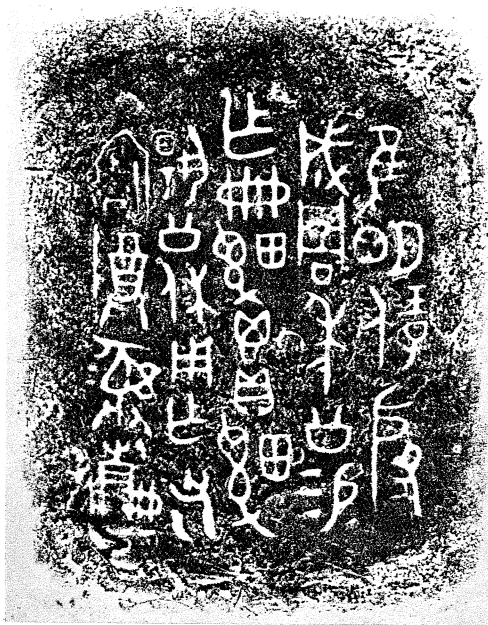 隹明保殷
成周年公易
乍冊䰧鬯貝䰧
揚公休用乍父乙
寶尊彝